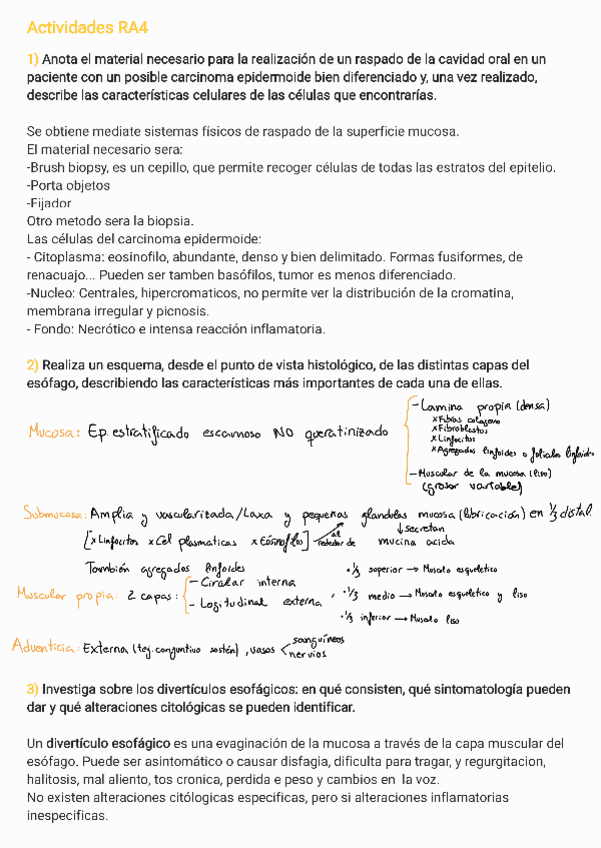 Actividades RA4
1) Anota el material necesario para la realización de un raspado de la cavidad oral en un
paciente con un posible carcinoma epidermoide bien diferenciado y, una vez realizado,
describe las características celulares de las células que encontrarías.
Se obtiene mediate sistemas físicos de raspado de la superficie mucosa.
El material necesario sera:
-Brush biopsy, es un cepillo, que permite recoger células de todas las estratos del epitelio.
-Porta objetos
-Fijador
Otro metodo sera la biopsia.
Las células del carcinoma epidermoide:
- Citoplasma: eosinofilo, abundante, denso y bien delimitado. Formas fusiformes, de
renacuajo... Pueden ser tamben basófilos, tumor es menos diferenciado.
-Nucleo: Centrales, hipercromaticos, no permite ver la distribución de la cromatina,
membrana irregular y picnosis.
- Fondo: Necrótico e intensa reacción inflamatoria.
2) Realiza un esquema, desde el punto de vista histológico, de las distintas capas del
esófago, describiendo las características más importantes de cada una de ellas.
Mucosa: Ep. estratificado escamoso NO queratinizado
- Lamina propia (densa)
x Fibras colageno
x Fibroblastos
x Linfocitos
x Agregados linfoides o foliculos linfoides
- Muscular de la mucosa (liso)
(grosor variable)
Submucosa: Amplia y vascularizada/Laxa y pequeñas glandulas mucosa (lubricación) en 1/3 distal.
↓ secretan
[x Linfocitos x Cel plasmaticas x Eosinofilos] al rededor de mucina acida
También agregados linfoides
Muscular propia: 2 capas:
- Circular interna
- Logitudinal externa,
· 1/3 superior → Musculo esqueletico
· 1/3 medio → Musculo esqueletico y liso
· 1/3 inferior → Musculo liso
Adventicia: Externa (tej. conjuntivo sostén), vasos
sanguineos
nervios
3) Investiga sobre los divertículos esofágicos: en qué consisten, qué sintomatología pueden
dar y qué alteraciones citológicas se pueden identificar.
Un divertículo esofágico es una evaginación de la mucosa a través de la capa muscular del
esófago. Puede ser asintomático o causar disfagia, dificulta para tragar, y regurgitacion,
halitosis, mal aliento, tos cronica, perdida e peso y cambios en la voz.
No existen alteraciones citólogicas especificas, pero si alteraciones inflamatorias
inespecificas.